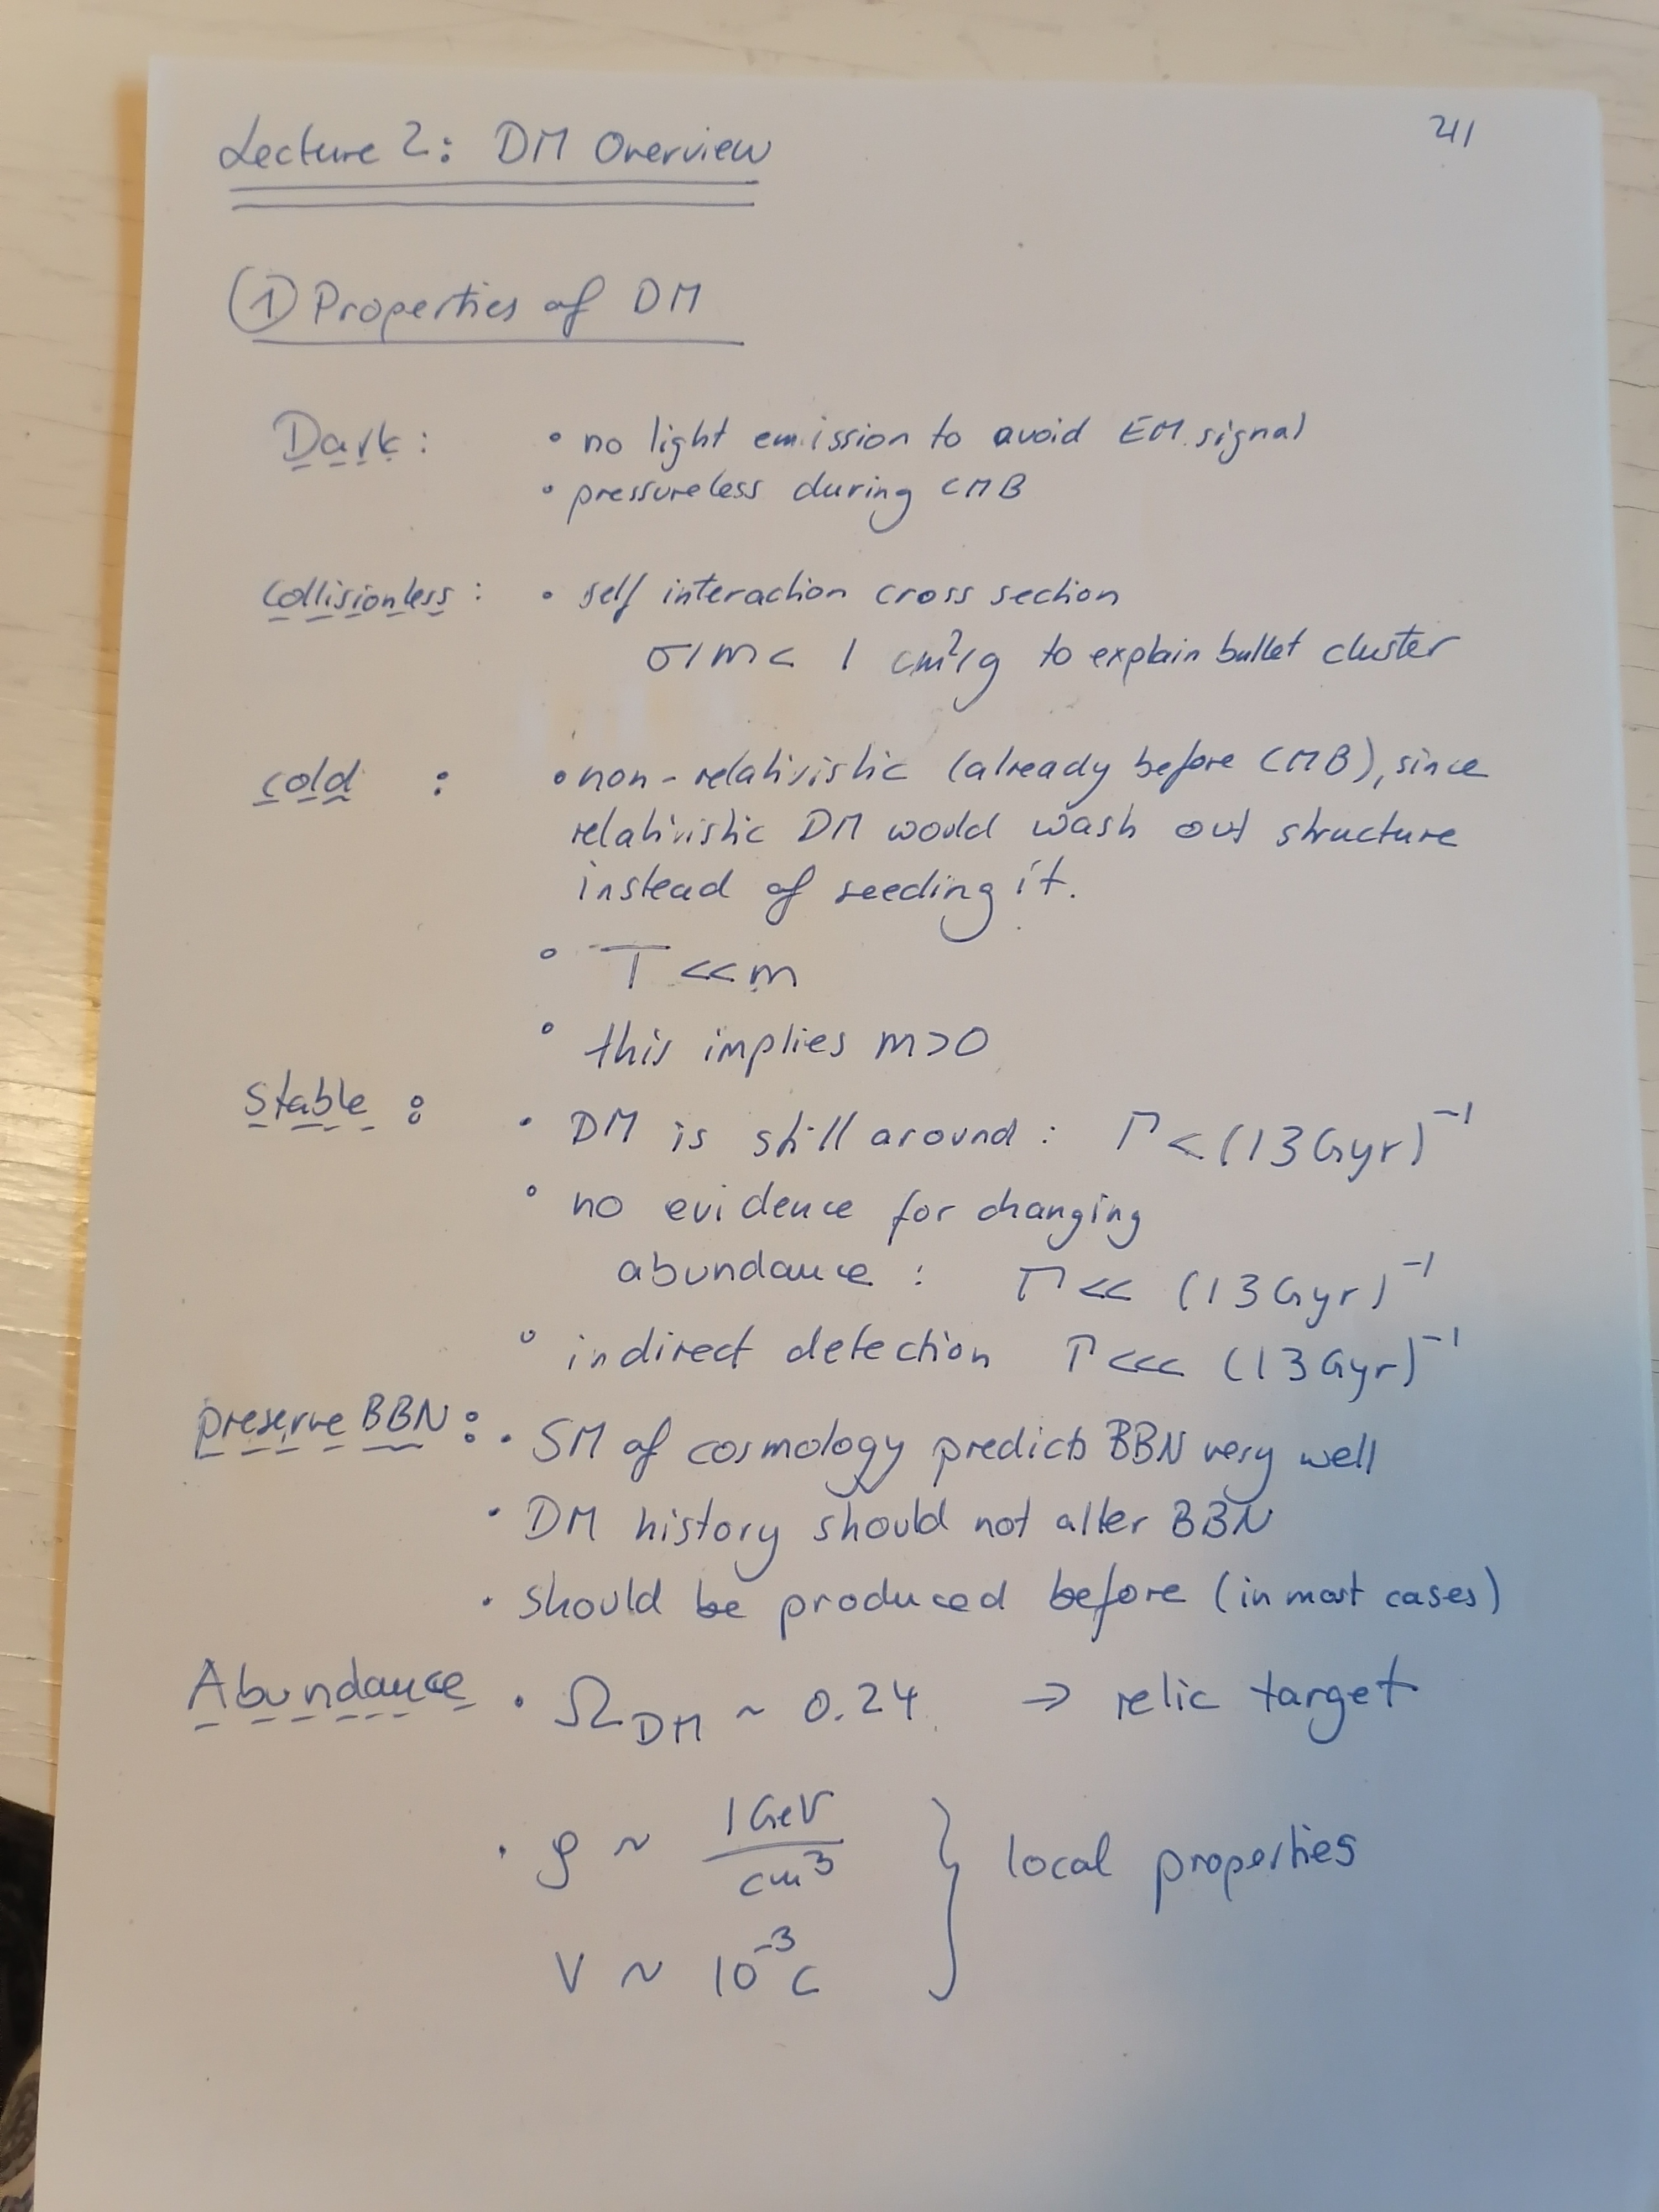 Lecture 2: DM Overview
2/1
① Properties of DM
Dark: • no light emission to avoid EM signal
• pressureless during CMB
Collisionless: • self interaction cross section
σ/m < 1 cm²/g to explain bullet cluster
cold : • non-relativistic (already before CMB), since
relativistic DM would wash out structure
instead of seeding it.
• T << m
• this implies m>0
Stable: • DM is still around: Γ < (13 Gyr)⁻¹
• no evidence for changing
abundance: Γ << (13 Gyr)⁻¹
• indirect detection Γ <<< (13 Gyr)⁻¹
preserve BBN: • SM of cosmology predicts BBN very well
• DM history should not alter BBN
• should be produced before (in most cases)
Abundance • Ω_DM ~ 0.24 → relic target
• ρ ~ 1 GeV / cm³ } local properties
v ~ 10⁻³ c